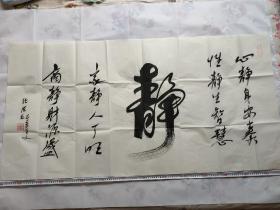 心静身安泰
性静生智慧
静
家静人丁旺
商静财源盛